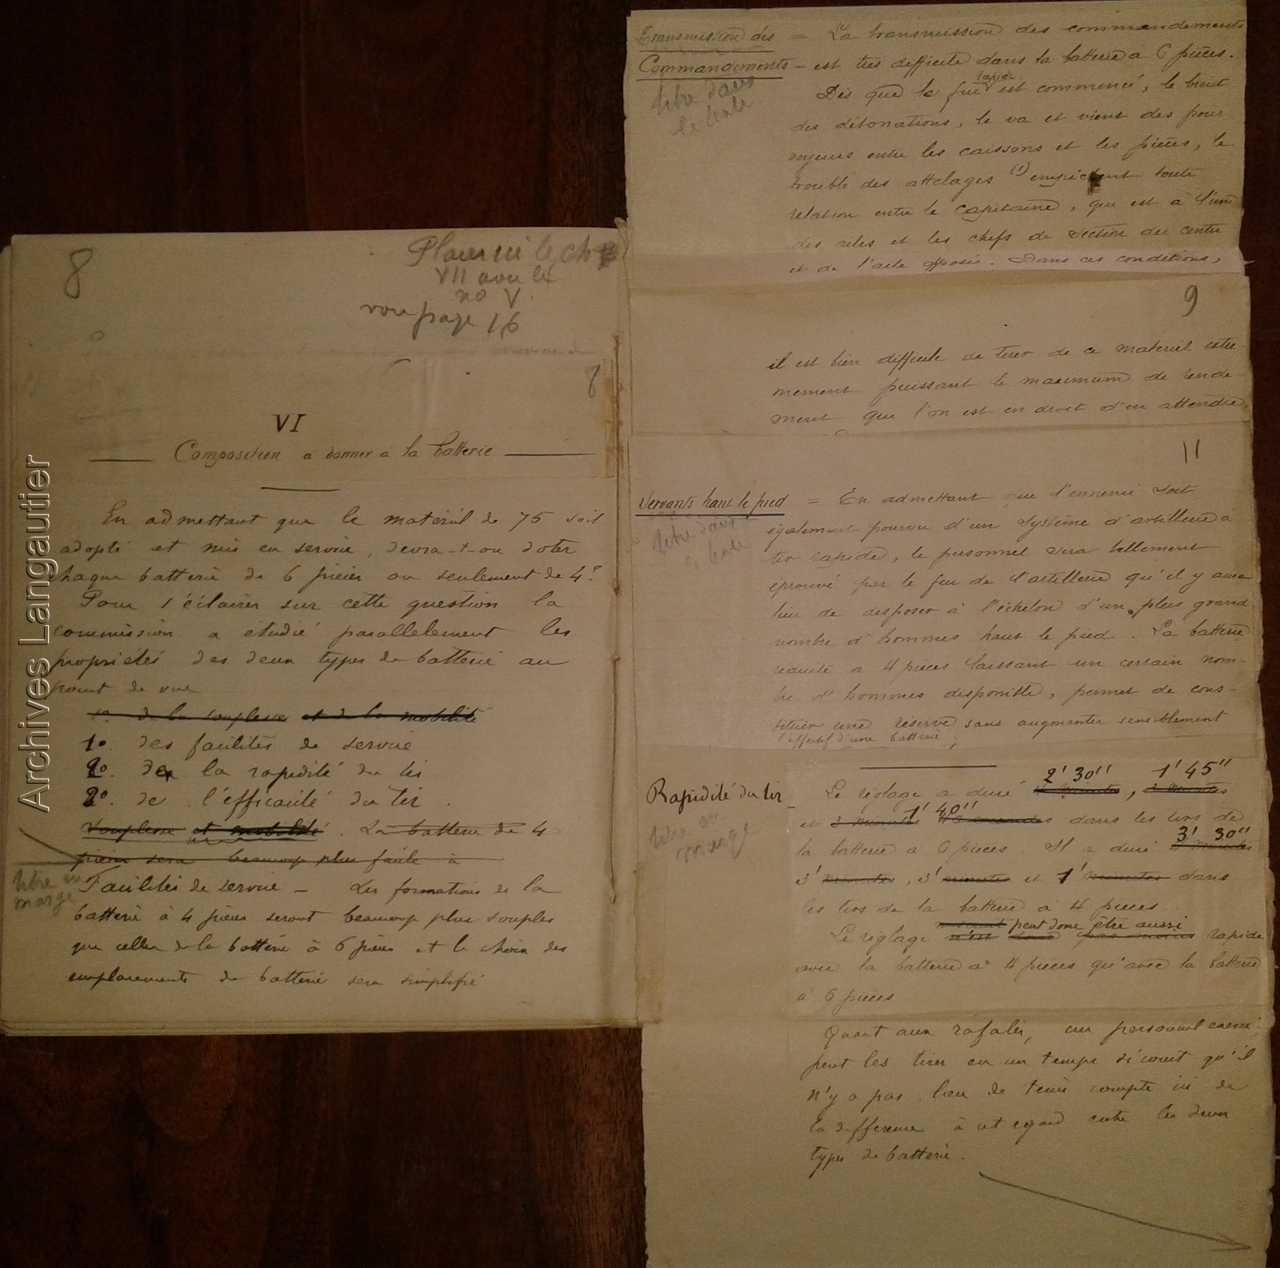 8
Placer ici le ch
VII avec le
no V.
voir page 16
8
VI
Composition à donner à la batterie
En admettant que le matériel de 75 soit
adopté et mis en service, devra-t-on doter
chaque batterie de 6 pièces ou seulement de 4?
Pour s'éclairer sur cette question la
commission a étudié parallèlement les
propriétés des deux types de batterie au
point de vue
1o de la souplesse et de la mobilité
1o. des facilités de service
2o. de la rapidité du tir
3o. de l'efficacité du tir.
Souplesse et mobilité. La batterie de 4
pièces sera beaucoup plus facile à
titre en
marge
Facilités de service - Les formations de la
batterie à 4 pièces seront beaucoup plus souples
que celles de la batterie à 6 pièces et le choix des
emplacements de batterie sera simplifié
Archives Langautier
Transmission des = La transmission des commandements
Commandements - est très difficile dans la batterie à 6 pièces.
titre dans
le texte
Dès que le feu rapide est commencé, le bruit
des détonations, le va et vient des pour
voyeurs entre les caissons et les pièces, le
trouble des attelages (1) empêchent toute
relation entre le capitaine, qui est à l'une
des ailes et les chefs de section du centre
et de l'aile opposée. Dans ces conditions,
9
il est bien difficile de tirer de ce matériel extrê
mement puissant le maximum de rende
ment que l'on est en droit d'en attendre
11
Servants haut le pied = En admettant que l'ennemi soit
titre dans
le texte
également pourvu d'un système d'artillerie à
tir rapide, le personnel sera tellement
éprouvé par le feu de l'artillerie qu'il y aura
lieu de disposer à l'échelon d'un plus grand
nombre d'hommes haut le pied. La batterie
réduite à 4 pièces laissant un certain nom-
bre d'hommes disponible, permet de cons-
tituer une réserve sans augmenter sensiblement
l'effectif d'une batterie;
Rapidité du tir - Le réglage a duré 2' 30", 1' 45"
titre en
marge
et 1' 40" dans les tirs de
la batterie à 6 pièces. Il a duré 3' 30"
3' minutes, 3' minutes et 1' minutes dans
les tirs de la batterie à 4 pièces
Le réglage peut donc être aussi rapide
avec la batterie à 4 pièces qu'avec la batterie
à 6 pièces
Quant aux rafales, un personnel exercé
peut les tirer en un temps si court qu'il
n'y a pas lieu de tenir compte ici de
la différence à cet égard entre les deux
types de batterie.